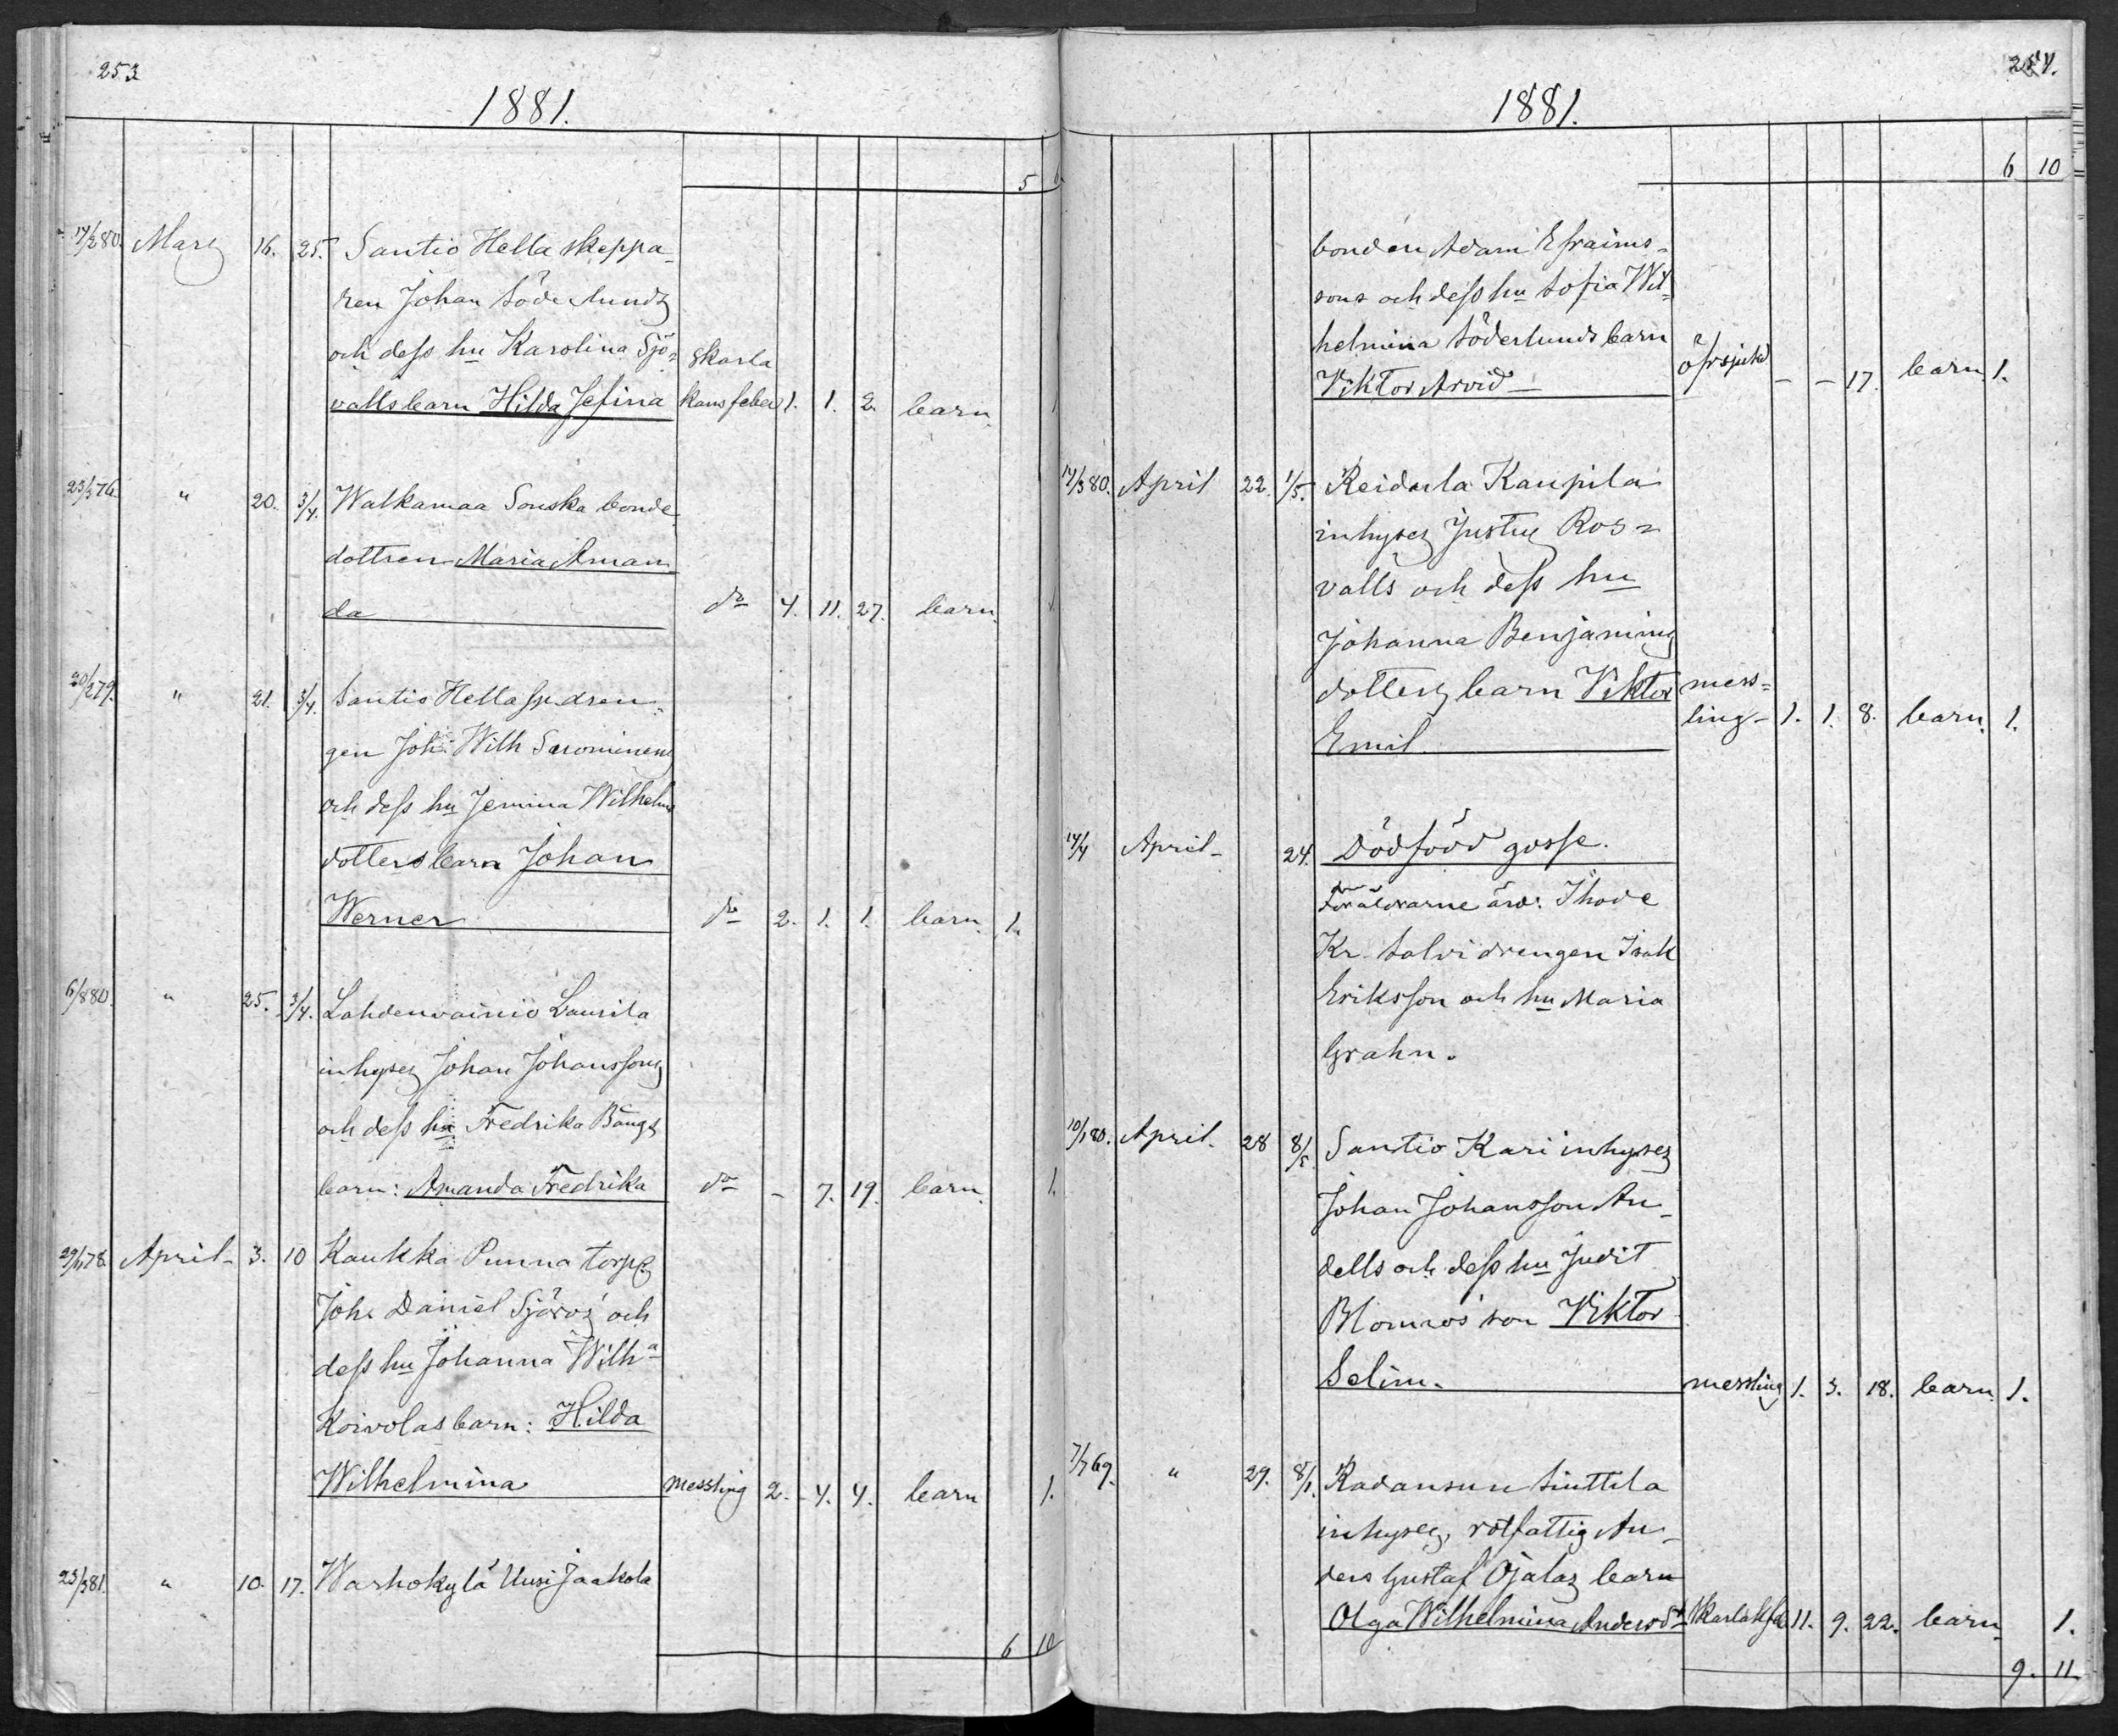 253
1881.
5 6
14/2 80. Mars 16. 25. Santio Hella skeppa-
ren Johan Söderlunds
och dess hu Karolina Sjö- skarla
valls barn Hilda Jefina kansfeber 1. 1. 2. barn 1
23/3 76. " 20. 3/4. Walkamaa Souska bonde
dottren Maria Aman
da do 4. 11. 27. barn 1
20/2 79. " 21. 3/4. Santio Hella sjodren-
gen Joh: Wilh Suominens
och dess hu Jemina Wilhelms
dotters barn Johan
Werner do 2. 1. 1. barn 1.
6/8 80. " 25. 3/4. Lahdenvainio Laurila
inhyses Johan Johanssons
och dess hu Fredrika Bångs
barn: Amanda Fredrika do - 7. 19. barn 1.
29/11 78. April 3. 10 Kaukka Punna torp:
Joh. Daniel Sjöros' och
dess hu Johanna Wilha
Koivolas barn: Hilda
Wilhelmina messling 2. 4. 4. barn 1.
23/3 81. " 10. 17. Warhokylä Uusi Jaakola
6 10
254.
1881.
6 10
bonden Adam Efraims-
sons och dess hu Sofia Wil-
helmina Söderlunds barn
Viktor Arvid öfsjukd - - 17. barn 1.
14/3 80. April 22. 1/5. Reidula Kaupila
inhyses Justus Ros-
valls och dess hu
Johanna Benjamins
dotters barn Viktor mess-
Emil. ling 1. 1. 8. barn 1.
14/4 April 24. Dödfödd gosse.
Föräldrarne äro: Ihode
Kr. Salvi drengen Isak
Eriksson och hu Maria
Grahn.
10/1 80. April. 28 8/5 Santio Kari inhyses
Johan Johansson An-
dells och dess hu Judit
Blomros' son Viktor
Selim. messling 1. 3. 18. barn 1.
7/7 69. " 29. 8/5. Radansuu Sinttila
inhyses, rotfattig An-
ders Gustaf Ojalas barn
Olga Wilhelmina Andersdr skarlakfr 11. 9. 22. barn 1.
9. 11